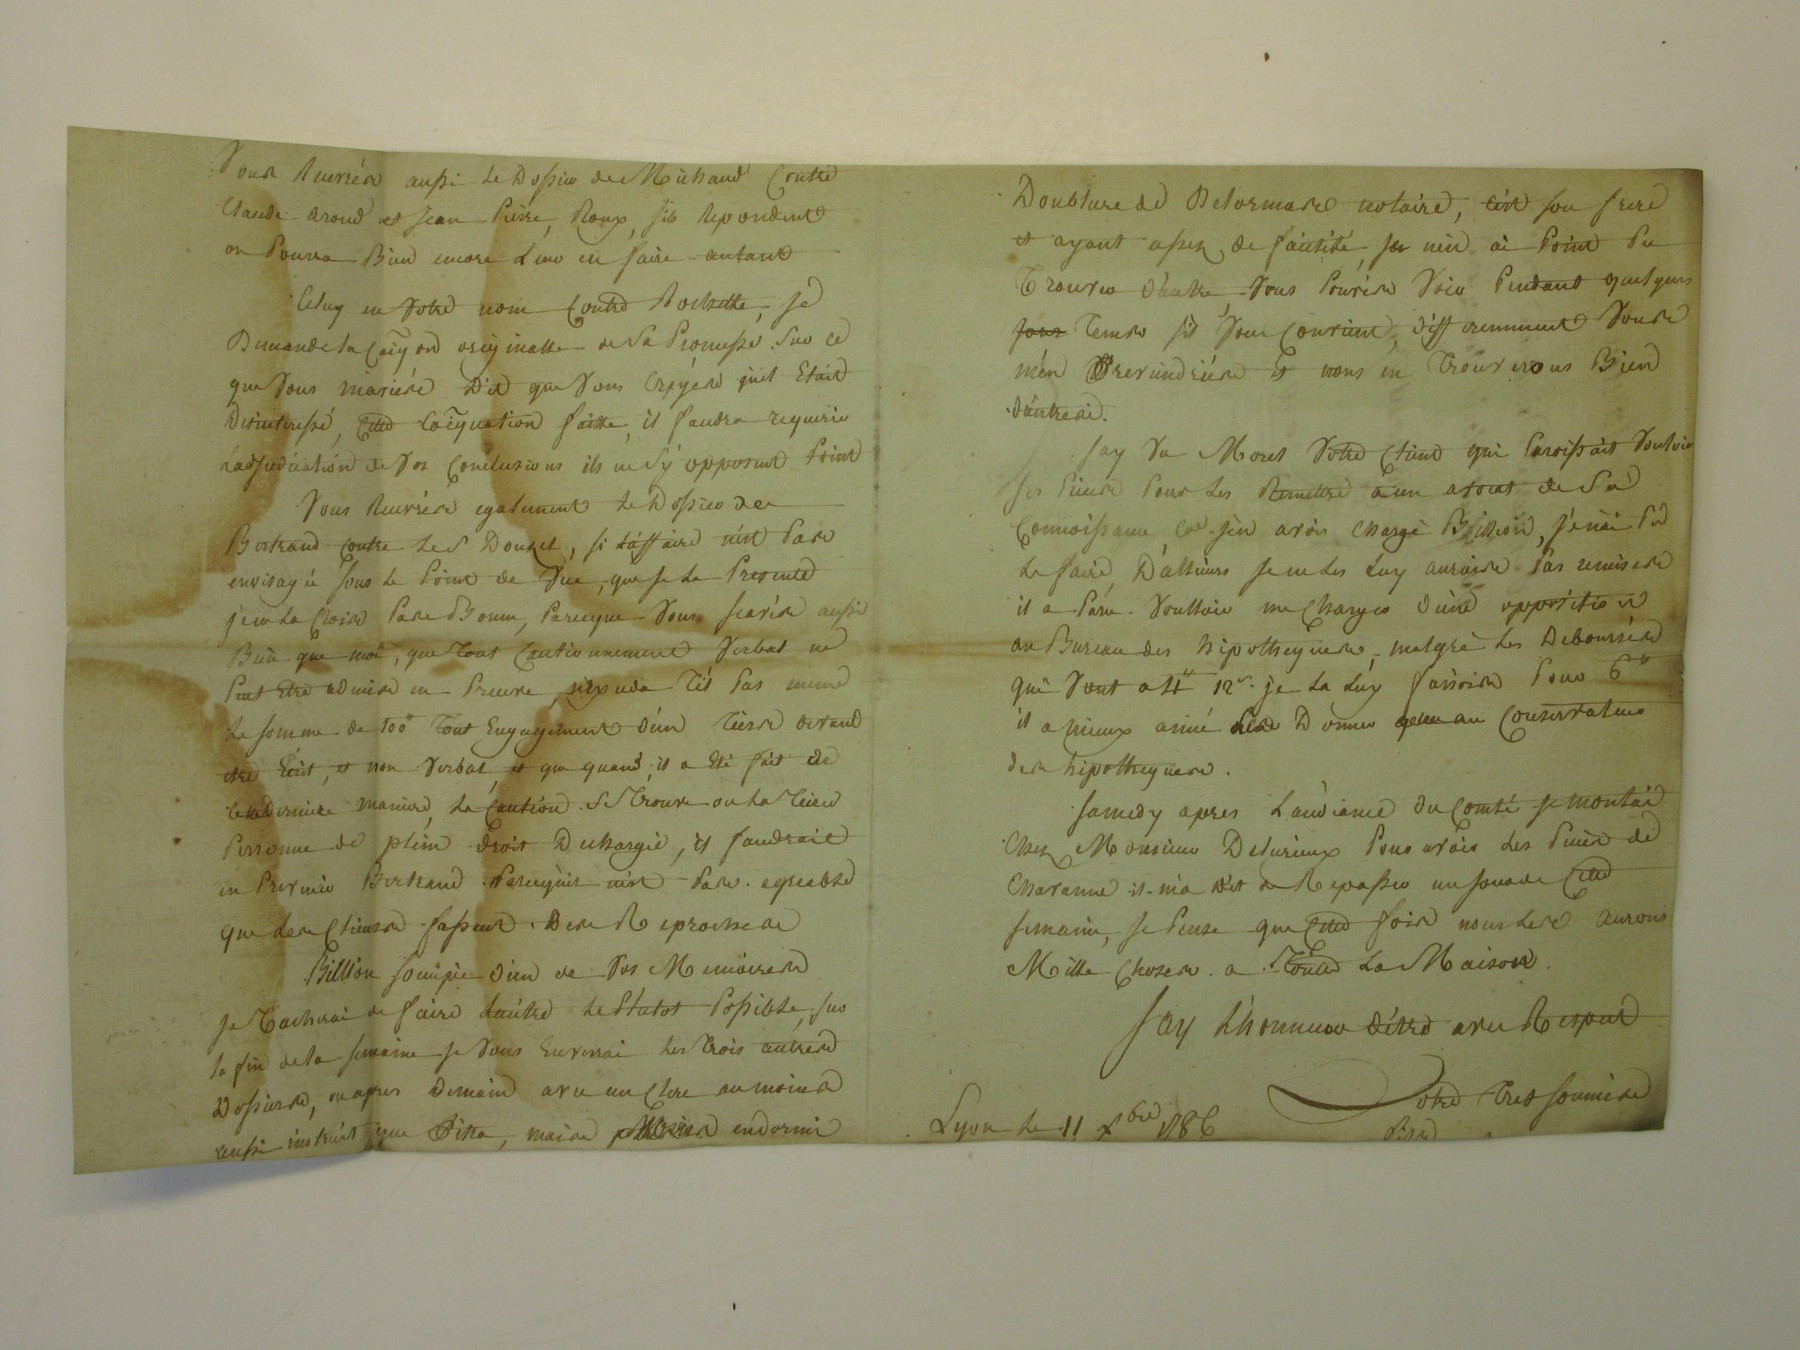 Vous Recevréz aussi le Dossier de Michaud Contre
Claude aroud et Jean Pierre Roux, s'ils Repondent
on Pourra Bien encore Leur en faire autant
Celuy en Votre nom Contre Rochette, je
Demande la originalle de Sa Promesse. Sur ce
que Vous m'aviéz Dit que Vous Croyéz qu'il Etait
Desinteressé, Cette faitte, il faudra requerir
l'adjudication de Vos Conclusions ils ne S'y opposent Point
Vous Recevréz egalement le Dossier de
Bertrand contre Le S Douzet, si L'affaire n'est Pas
envisagéé sous le Point de Vüe, que je la Presente
je ne La Crois Pas Bonne, Parceque Vous scavéz aussi
Bien que moi, que Tout Cautionnement Verbal ne
Peut Etre admis en Preuve, n'exceda T'il Pas meme
La somme de 100# Tout Engagement d'un Tiers devant
etre Ecrit, et non Verbal et que quand, il a Eté fait de
Cette Derniere maniere, La Caution Se Trouve ou La Tierce
Personne de plein droit Dechargéé, il faudrait
en Prevenir Bertrand Parcequ'il n'est Pas agreable
que Les Clients fassent Des Reproches
Billion de Vos Memoires
Je Tacherai de faire L'autre le Plutot Possible, sur
la fin de la semaine je Vous Enverrai Les Trois autres
Dossiers, ou apres Demain avec un Clerc au moins
aussi instruit que Pitra, mais endormi
Doublure de Delormas notaire, C'est son frere
et ayant assez de je n'en ai Point Pu
Trouver d'autre, Vous Pouréz Voir Pendant quelques
Tems s'il Vous Convient, differemment Vous
m'en Previendriéz Et nous en Trouverons Bien
d'autres.
J'ay Vu Moret Votre Client qui Paroissait Vouloir
ses Pieces Pour Les Remettre a un avocat de Sa
Connoissance j'en avois Chargé Billion, je n'ai Pu
Le faire, D'ailleurs je ne Les Luy aurois Pas remises
il a Paru Vouloir me Charger d'une opposition
au Bureau des hipotheques, malgré Les Deboursés
qui Vont a 4# 12s. je La Luy faisois Pour 6#
il a mieux aimé Donner au Conservateur
des hipotheques.
Samedy apres L'audiance du Comté je montai
Chez Monsieur Delurieux Pour avoir Les Pieces de
Charanne il m'a Dit de Repasser un jour de Cette
semaine, je Pense que Cette fois nous Les aurons
Mille Choses a Toute La Maison.
J'ay L'honneur d'etre avec Respect
Votre Tres soumis
Lyon Le 11 Xbre 1786